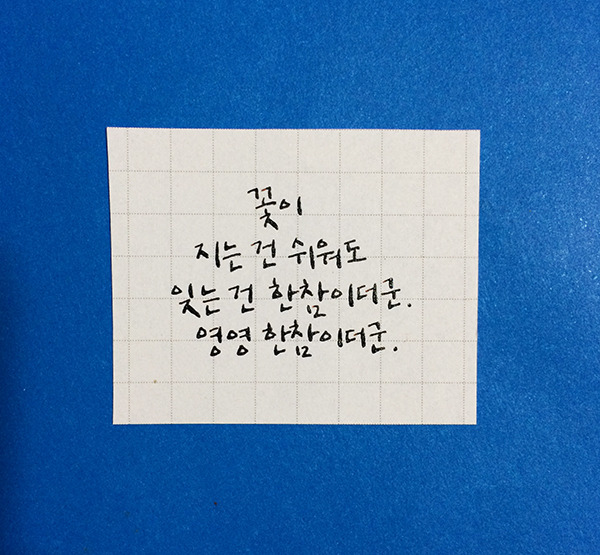 꽃이
지는 건 쉬워도
잊는 건 한참이더군.
영영 한참이더군.